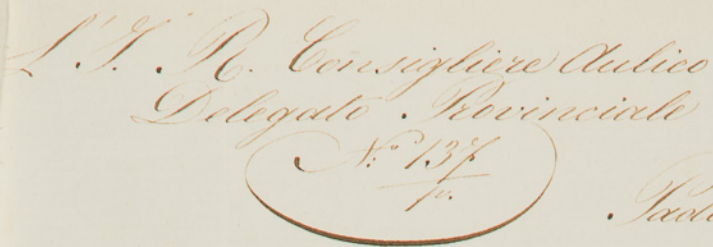 L'I. R. Consigliere Aulico
Delegato Provinciale
N.° 137
p.